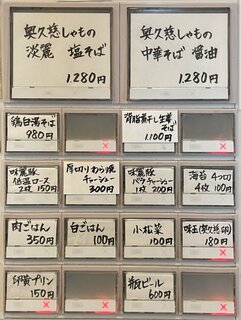 奥久慈しゃもの
淡麗 塩そば
1,280円
奥久慈しゃもの
中華そば 醤油
1,280円
鶏白湯そば
980円
背脂煮干し生姜
そば
1,100円
味麗豚
低温ロース
2枚 150円
厚切りわら焼
チャーシュー
300円
味麗豚
バラチャーシュー
1枚 200円
海苔 4つ切
4枚 100円
肉ごはん
350円
白ごはん
100円
小松菜
100円
味玉(奥久慈卵)
180円
プリン
150円
瓶ビール
600円